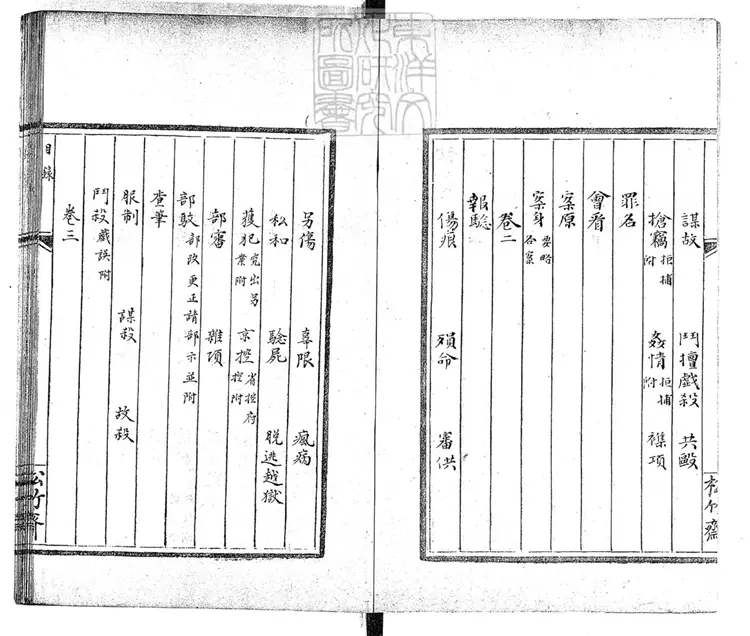 謀故 鬥擅戲殺 共毆
搶竊拒捕附 姦情拒捕附 襍項
罪名
會看
案原
案身要略各案
卷二
報驗
傷痕 殞命 審供
另傷 辜限 瘋病
私和 驗屍 脫逃越獄
獲犯究出另業附 京控省控府控附
部審 雜項
部駮部改更正請部示並附
查筆
服制 謀殺 故殺
鬥殺戲誤附
卷三
目錄
松竹齋
松竹齋
東洋文庫研究所圖書